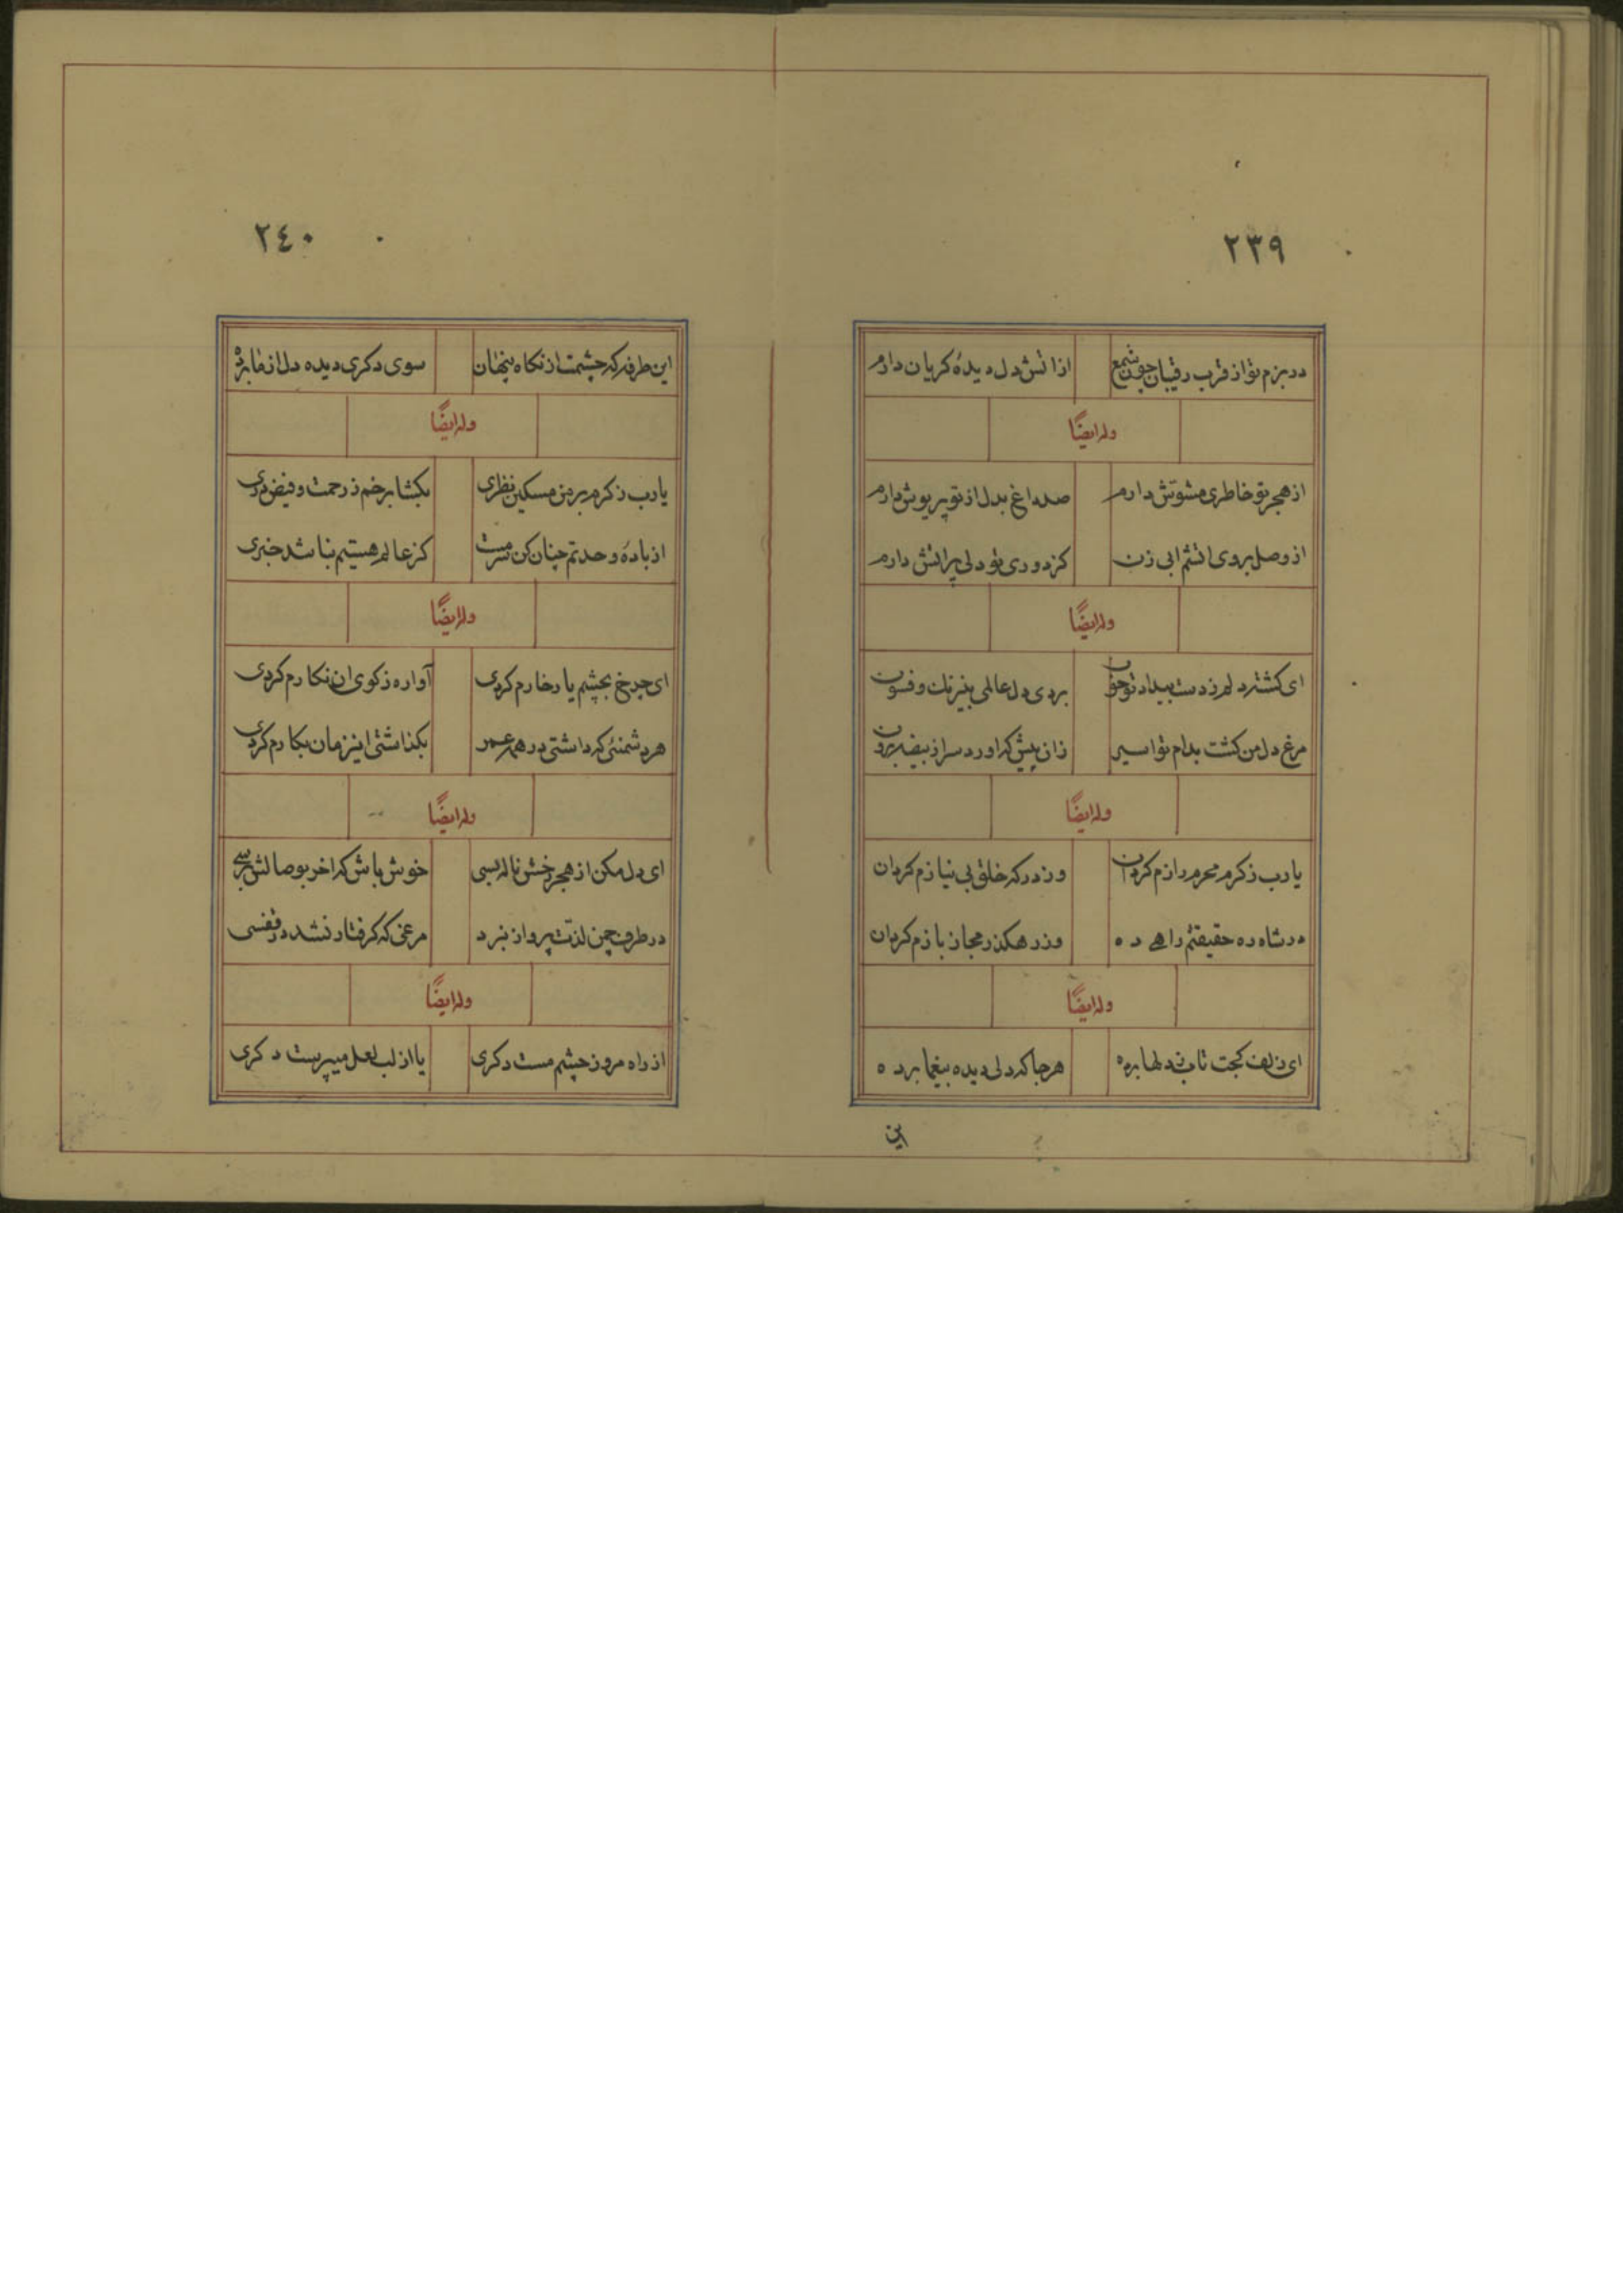 ٢٣٩
در بزم تو از قرب رقیبان چون شمع از اتش دل دیدهٔ کریان دارم
وله ایضًا
از هجر تو خاطری مشوّش دارم صد داغ بدل از تو پریوش دارم
از وصل بروی اتشم ابی زن کز دوری تو دلی پر اتش دارم
وله ایضًا
ای کشته دلم ز دست بیداد تو خون بردی دل عالمی بنیرنك و فسون
مرغ دل من کشت بدام تو اسیر زان پیش که اورد سر از بیضه برون
وله ایضًا
یا رب ز کرم محرم رازم کردان وز درکه خلق بی نیازم کردان
در شاه ره حقیقتم راهی ده وز رهکذر مجاز بازم کردان
وله ایضًا
ای زلف کجت تاب ز دلها برده هر جا که دلی دیده بیغما برده
این
٢٤٠
این طرفه که چشمت از نکاه پنهان سوی دکری دیده دل از ما برده
وله ایضًا
یا رب ز کرم بر من مسکین نظری بکشا برخم ز رحمت و فیض دری
از بادهٔ وحدتم چنان کن سرمست کز عالم هستیم نباشد خبری
وله ایضًا
ای چرخ بچشم یار خارم کردی آواره ز کوی ان نکارم کردی
هر دشمنئی که داشتی در همه عمر بکذاشتی اینزمان بکارم کردی
وله ایضًا
ای دل مکن از هجر رخش ناله بسی خوش باش که اخر بوصالش برسی
در طرف چمن لذت پرواز نبرد مرغی که کرفتار نشد در قفسی
وله ایضًا
از راه مرو ز چشم مست دکری یا از لب لعل میپرست دکری